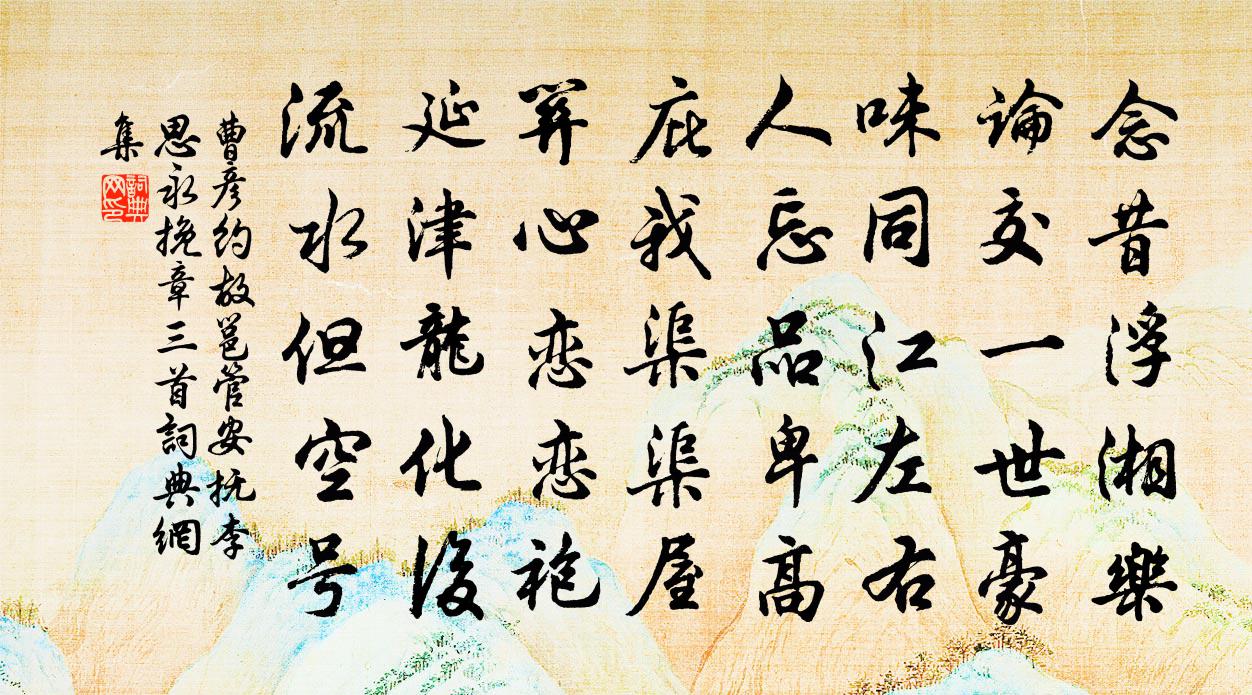 念昔浮湘樂
論交一世豪
味同江左右
人忘品卑高
庇我渠渠屋
羿心恋恋袍
延津龍化後
流水但空号
曹彦約故邕管安抚李
思永挽章三首詞典網
集
詞典
网印